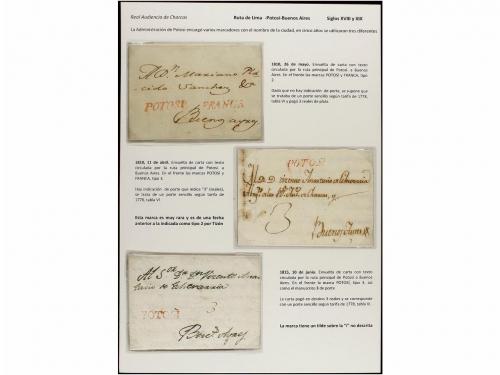 Real Audiencia de Charcas Ruta de Lima -Potosí-Buenos Aires Siglos XVIII y XIX
La Administración de Potosí encargó varios marcadores con el nombre de la ciudad, en cinco años se utilizaron tres diferentes
1810, 26 de mayo. Envuelta de carta con texto
circulada por la ruta principal de Potosí a Buenos
Aires. En el frente las marcas POTOSÍ y FRANCA, tipo
2.
Dado que no hay indicación de porte, se supone que
se trataba de un porte sencillo según tarifa de 1778,
tabla VI y pagó 3 reales de plata.
POTOSI FRANCA
1810, 11 de abril. Envuelta de carta con texto
circulada por la ruta principal de Potosí a
Buenos Aires. En el frente las marcas POTOSÍ
y FRANCA, tipo 3.
Hay indicación de porte que indica "3" (reales),
se trata de un porte sencillo según tarifa de
1778, tabla VI
Esta marca es muy rara y es de una fecha
anterior a la indicada como tipo 2 por Tizón
POTOSI
3
Buenos Ayres
1815, 10 de junio. Envuelta de carta con texto
circulada por la ruta principal de Potosí a Buenos
Aires. En el frente la marca POTOSI, tipo 4, así
como el manuscrito 3 de porte
La carta pagó en destino 3 reales y se corresponde
con un porte sencillo según tarifa de 1778, tabla VI.
La marca tiene un tilde sobre la "I" no descrita
POTOSÍ 3